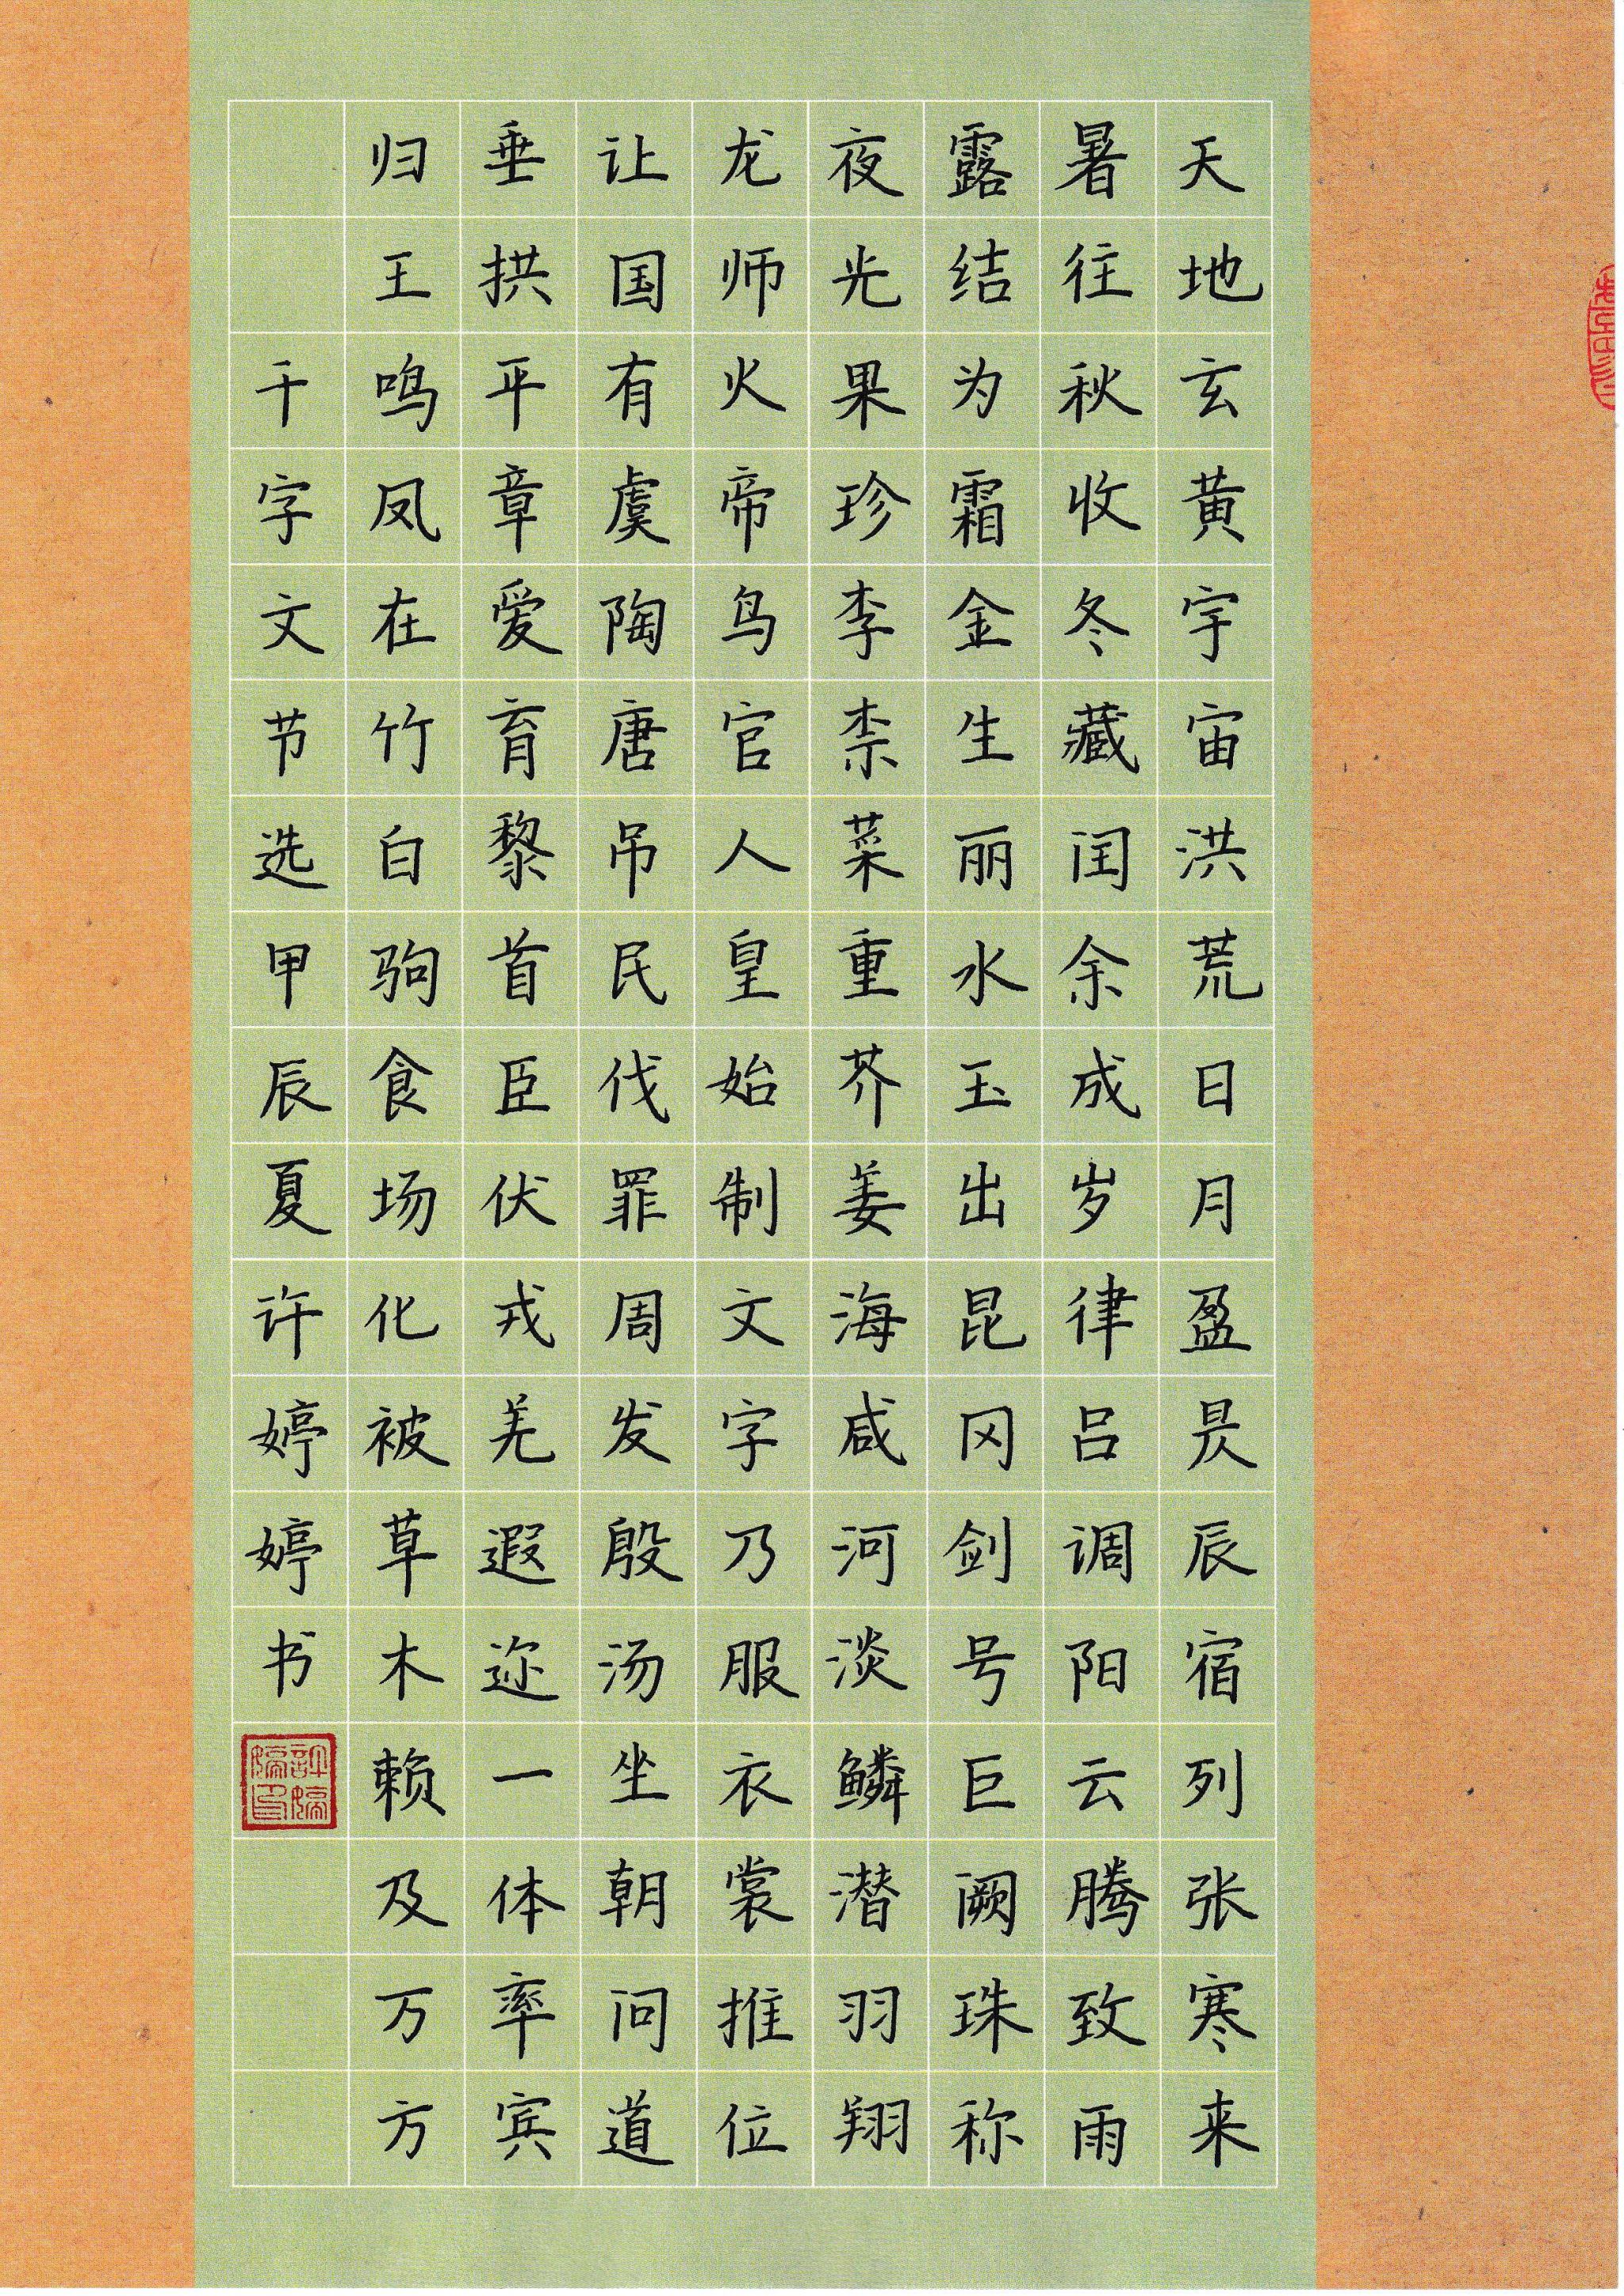 天地玄黄宇宙洪荒日月盈昃辰宿列张寒来
暑往秋收冬藏闰余成岁律吕调阳云腾致雨
露结为霜金生丽水玉出昆冈剑号巨阙珠称
夜光果珍李柰菜重芥姜海咸河淡鳞潜羽翔
龙师火帝鸟官人皇始制文字乃服衣裳推位
让国有虞陶唐吊民伐罪周发殷汤坐朝问道
垂拱平章爱育黎首臣伏戎羌遐迩一体率宾
归王鸣凤在竹白驹食场化被草木赖及万方
千字文节选甲辰夏许婷婷书
許婷婷印